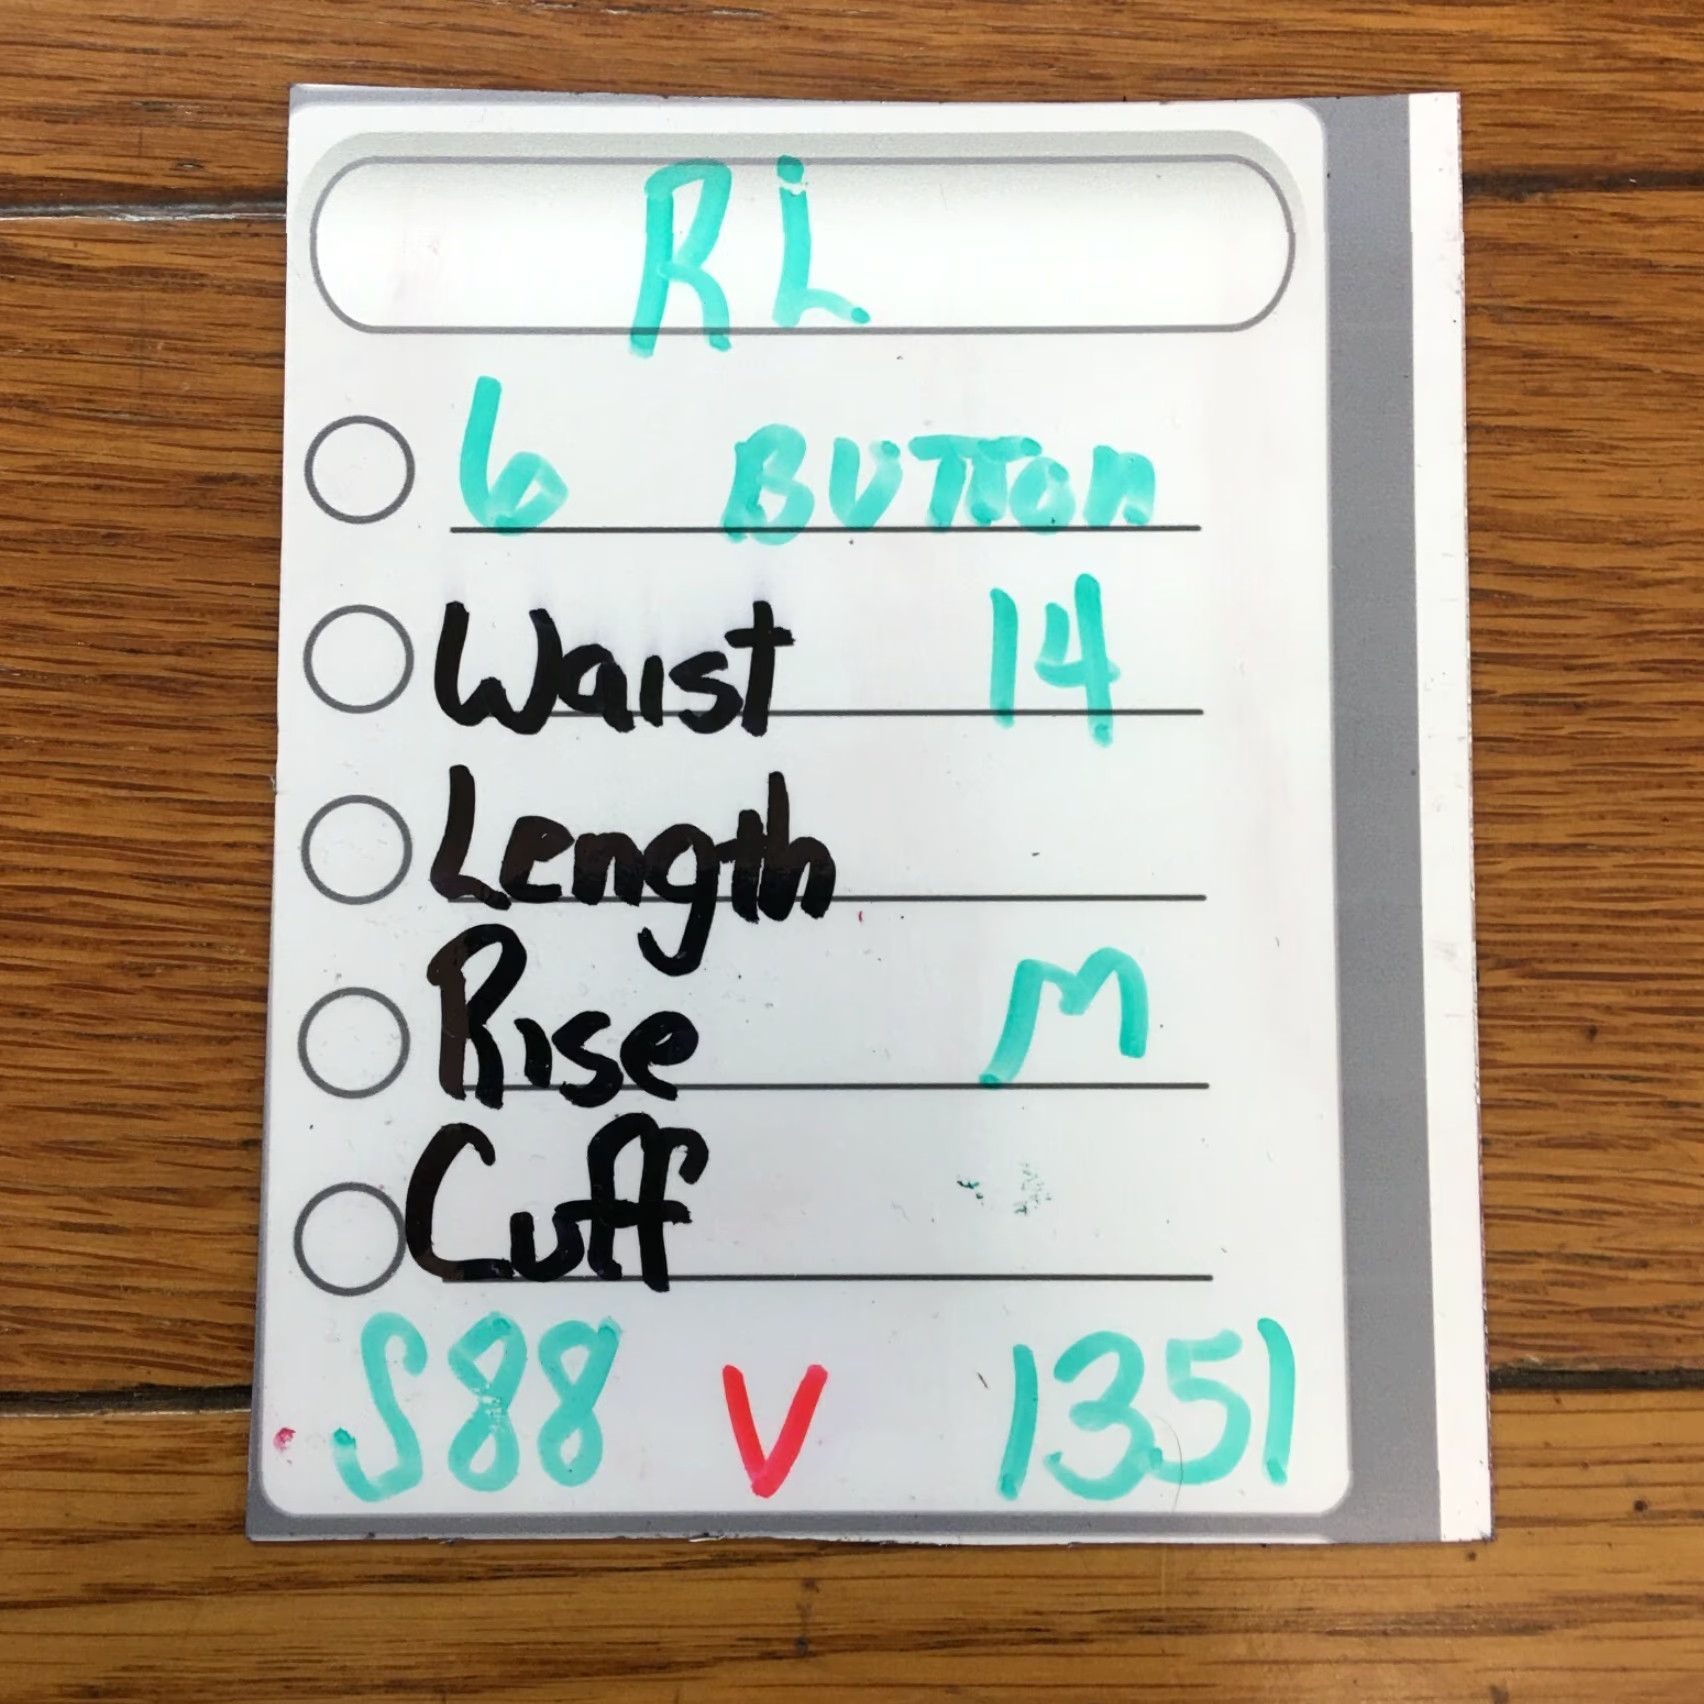 RL
6 BUTTON
Waist 14
Length
Rise M
Cuff
S88 V 1351